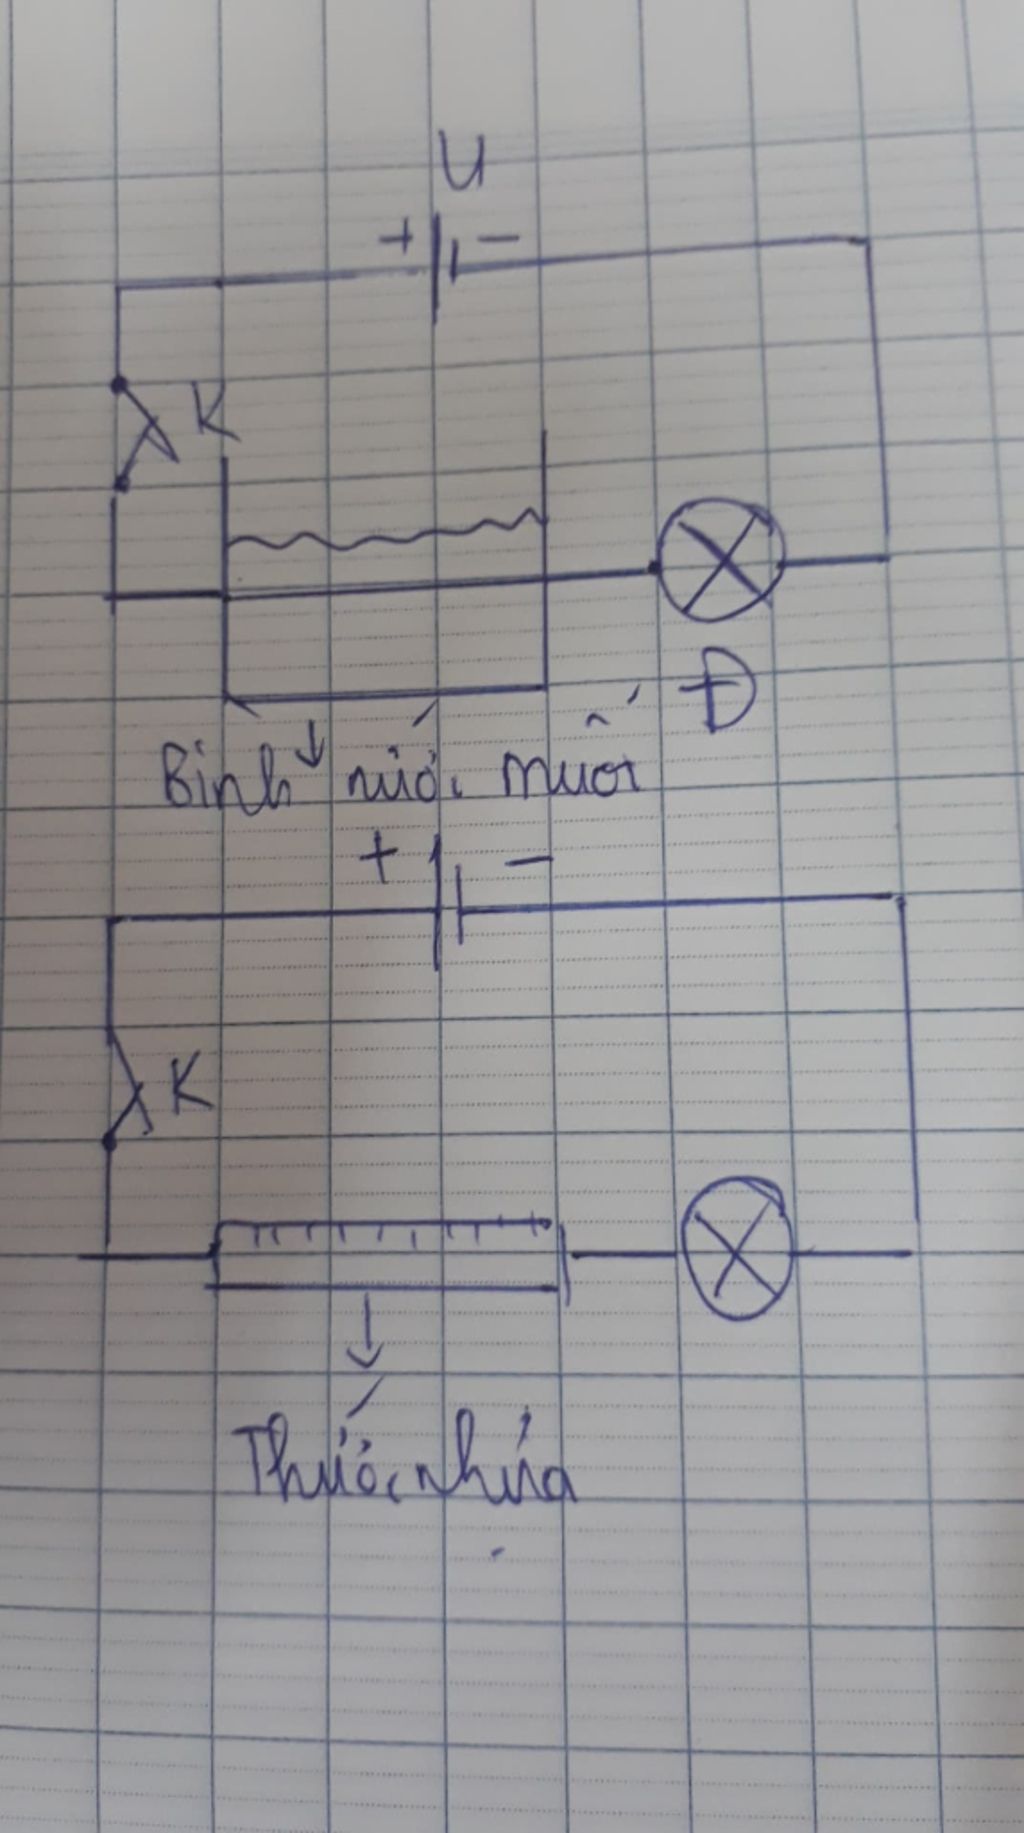 U
+ -
K
Đ
Bình nước muối
+ -
K
Thước nhựa